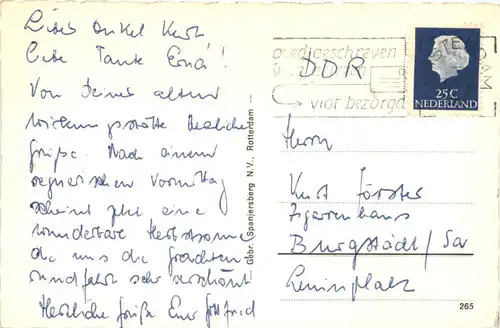 Liebe Onkel Kurt
liebe Tante Erna!
Von Deiner alten
Wirkungsstätte herzliche
Grüße. Nach einem
regnerischen Vormittag
scheint jetzt eine
wunderbare Herbstsonne
die uns die Grachten-
rundfahrt sehr verschönt
Herzliche Grüße Euer Gottfried
Gebr. Spanjersberg N.V., Rotterdam
goed geschreven
vlot bezorgd
DDR
AMSTERDAM
25 C
NEDERLAND
Herrn
Kurt Förster
Zigarrenhaus
Burgstädt/Sa
Leninplatz
265